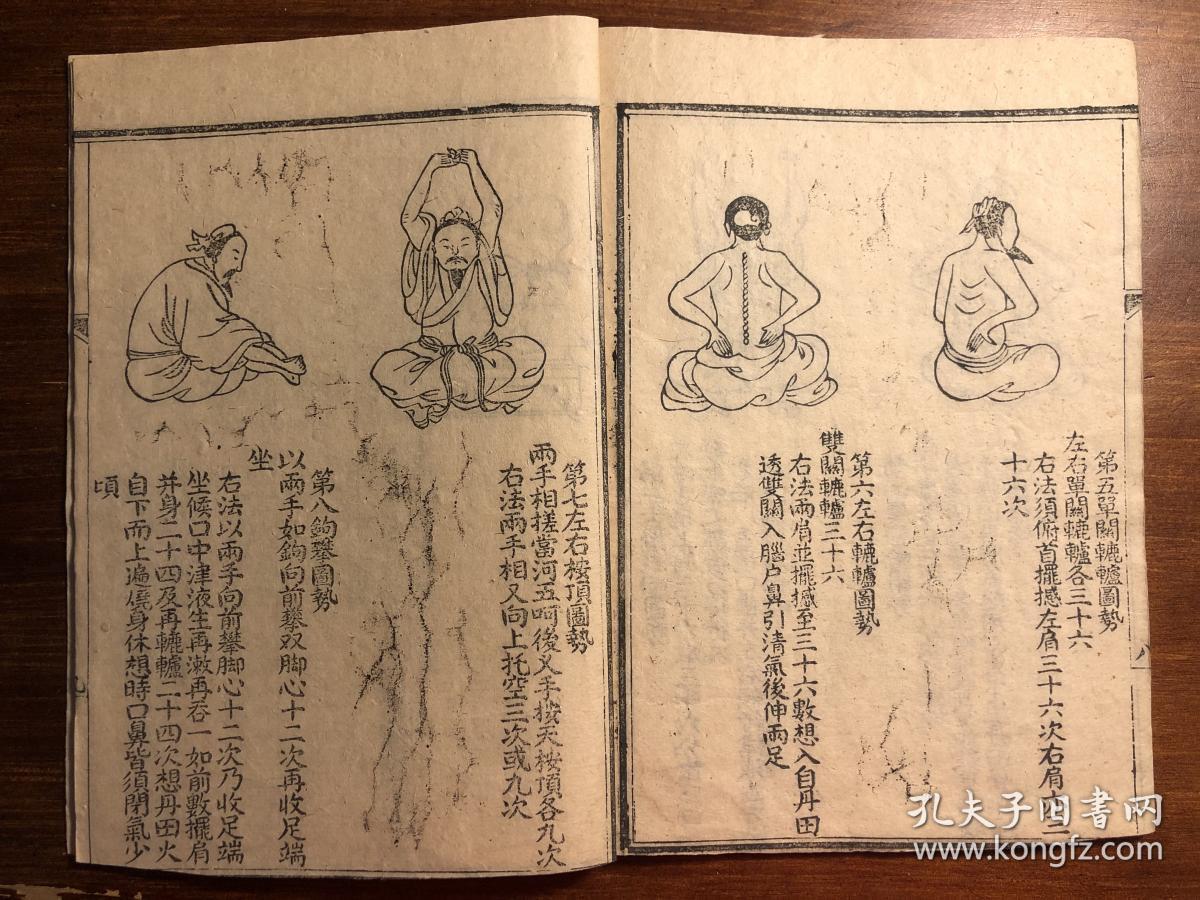 第五單關轆轤圖勢
左右單關轆轤各三十六
右法須俯首擺撼左肩三十六次右肩亦三
十六次
第六左右轆轤圖勢
雙關轆轤三十六
右法兩肩並擺撼至三十六數想入自丹田
透雙關入腦户鼻引清氣後伸兩足
第七左右按頂圖勢
兩手相搓當河五呵後叉手按天按頂各九次
右法兩手相叉向上托空三次或九次
第八鉤攀圖勢
以兩手如鉤向前攀双脚心十二次再收足端
坐
右法以兩手向前攀脚心十二次乃收足端
坐候口中津液生再漱再吞一如前數擺肩
并身二十四及再轆轤二十四次想丹田火
自下而上遍燒身休想時口鼻皆須閉氣少
頃
八
九
孔夫子旧书网
www.kongfz.com